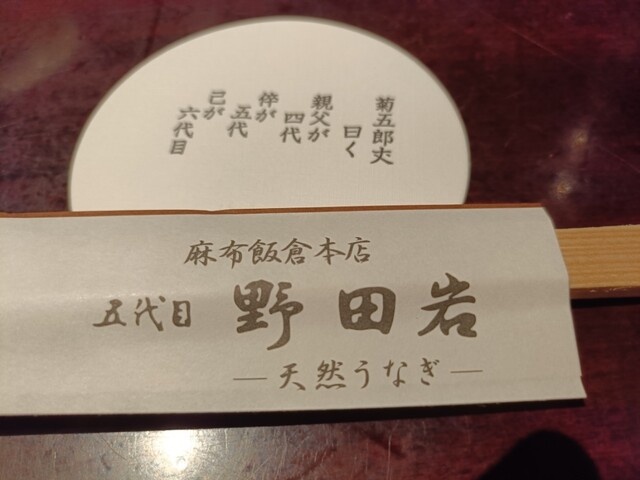 菊五郎丈
曰く
親父が
四代
倅が
五代
己が
六代目
麻布飯倉本店
五代目 野田岩
―天然うなぎ―